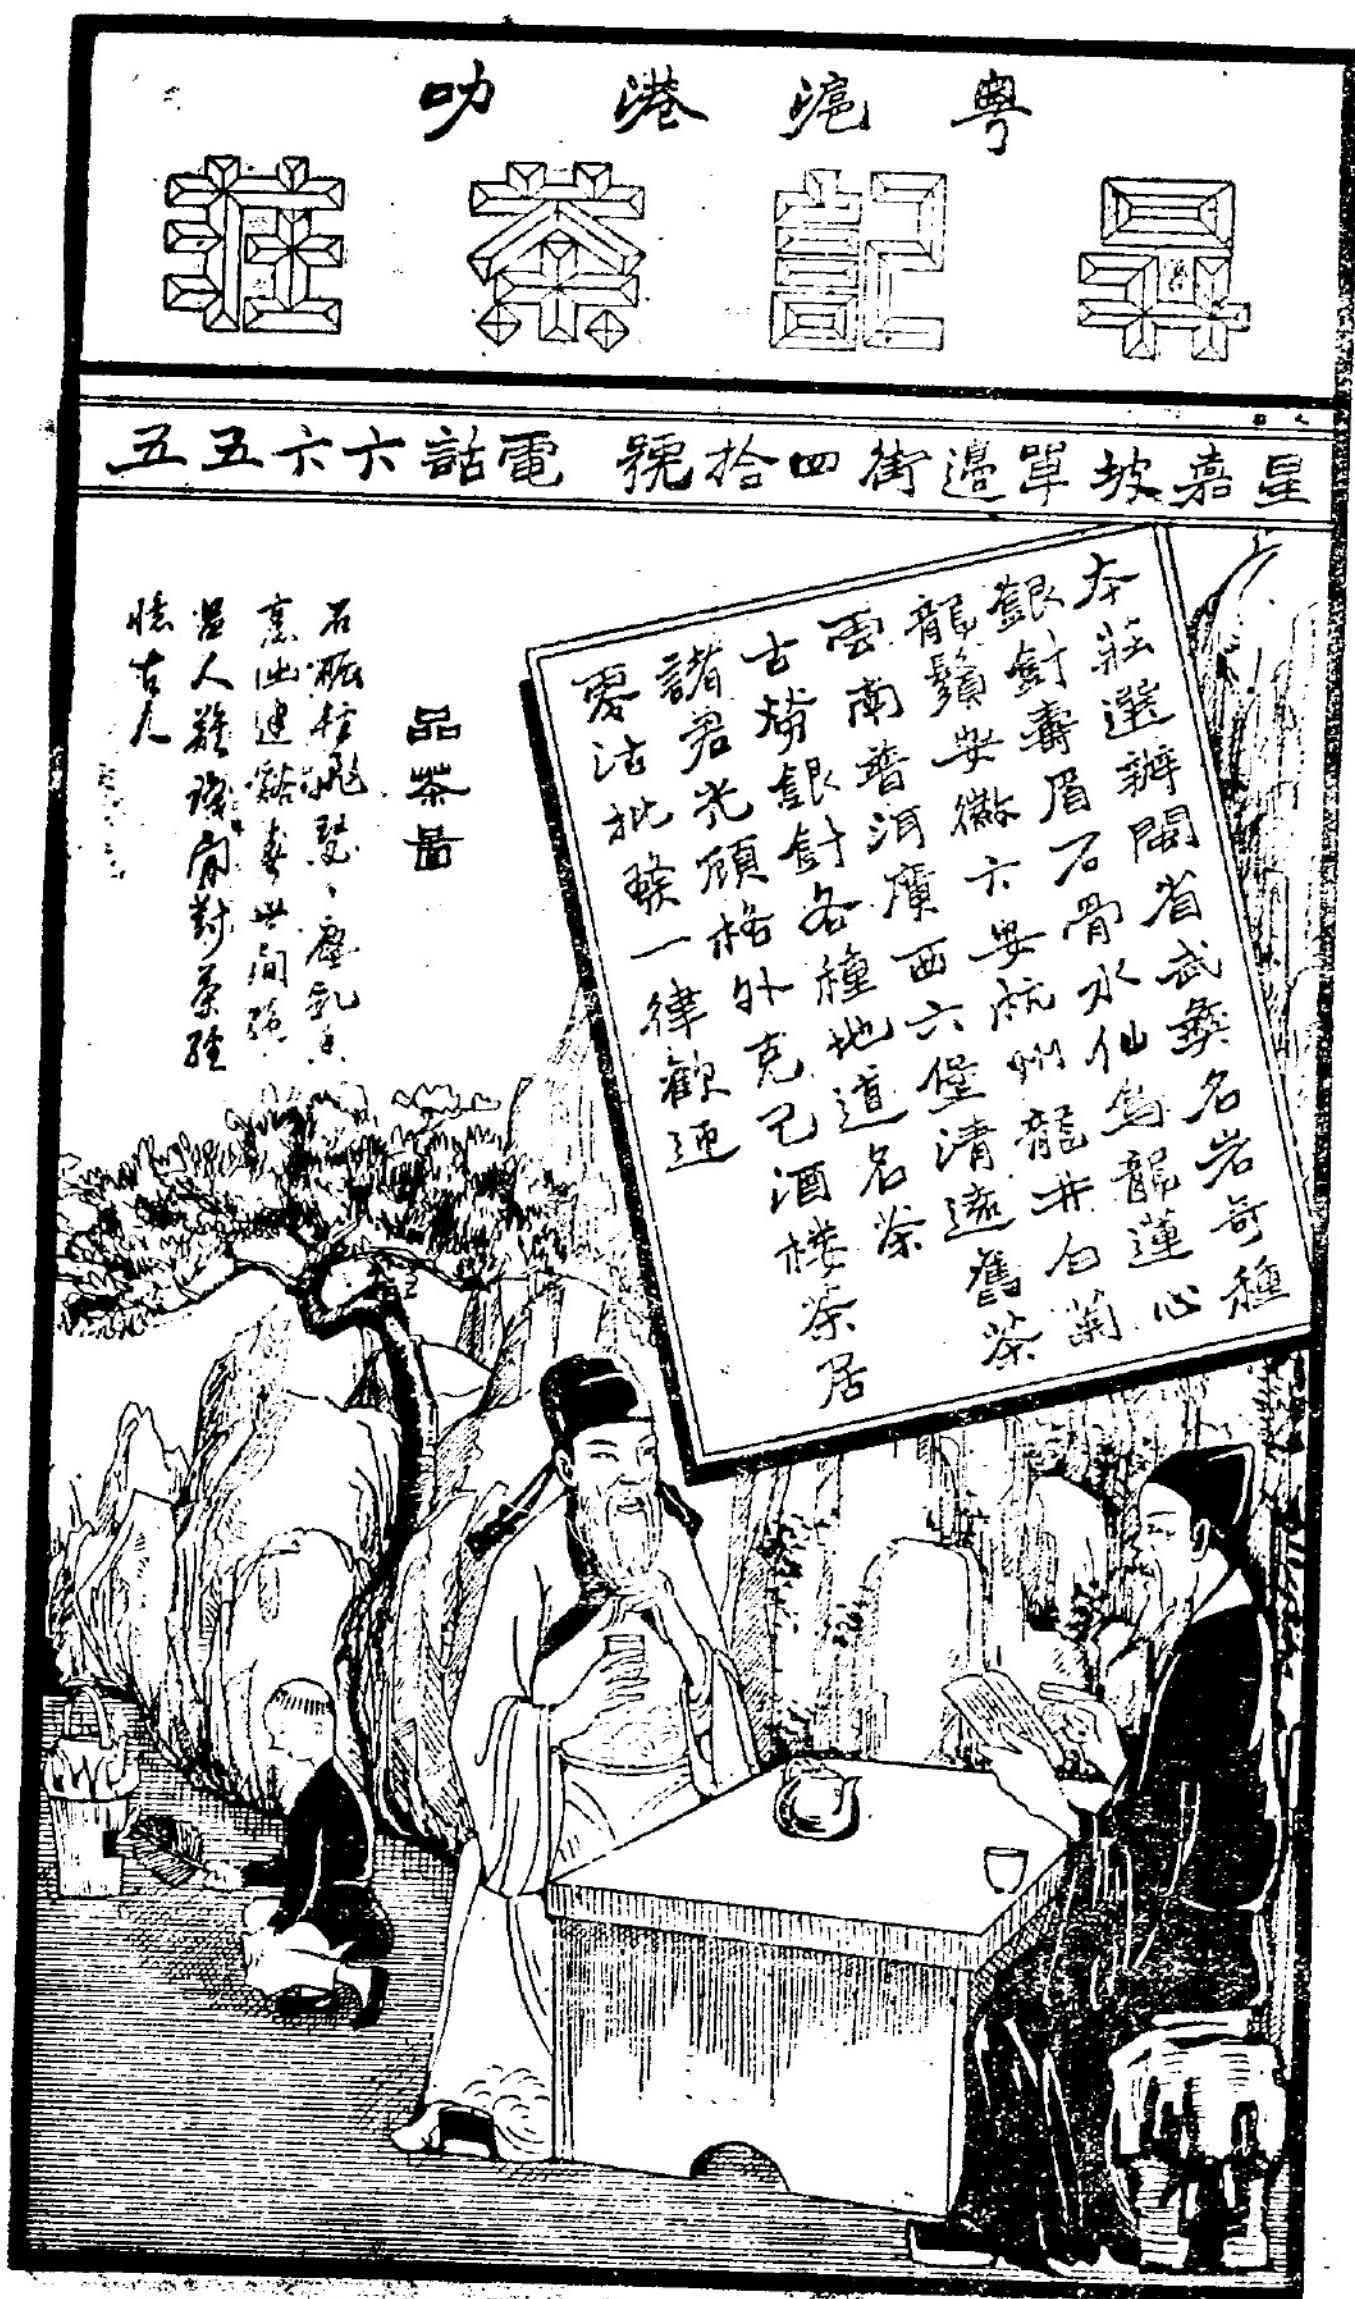 粵滬港叻
昇記茶莊
星嘉坡單邊街四拾號 電話六六五五
本莊選辦閩省武彝名岩奇種
銀針壽眉石骨水仙烏龍蓮心
龍鬚安徽六安杭州龍井白菊
雲南普洱廣西六堡清遠舊茶
古勞銀針各種地道名茶
諸君光顧格外克己酒樓茶居
零沽批發一律歡迎
品茶圖
石碾輕飛瑟〻塵乳香
烹出建谿春世間絕
品人難識閑對茶經
憶古人